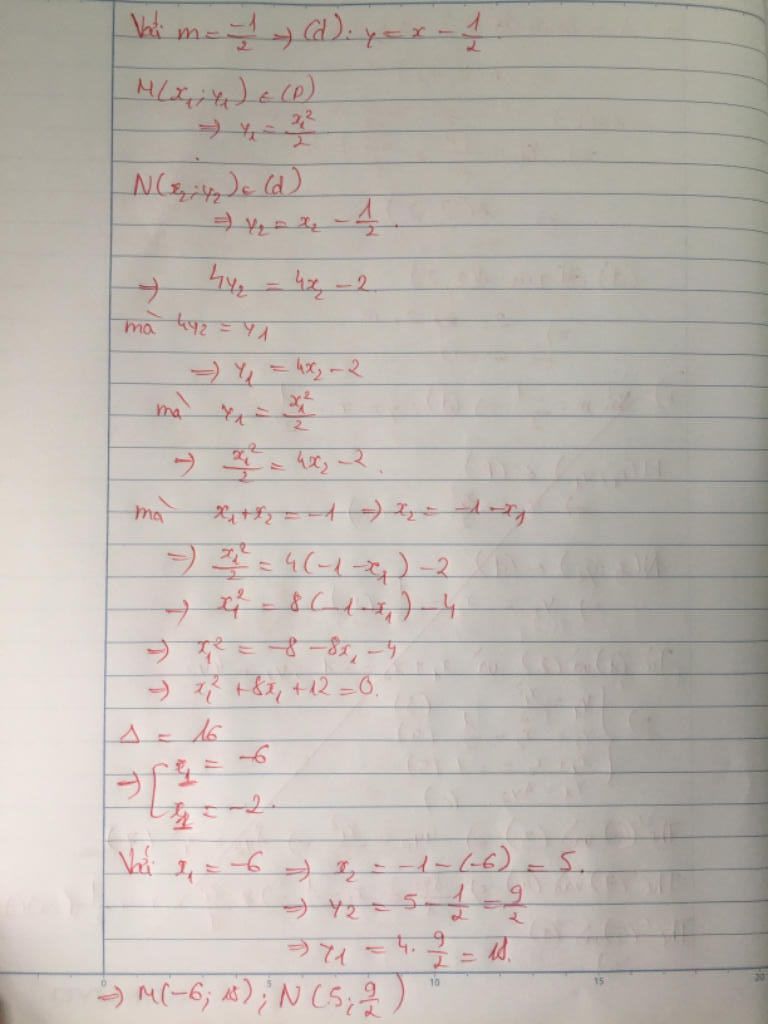 Với m = -1/2 => (d): y = x - 1/2.
M(x₁; y₁) ∈ (P)
=> y₁ = x₁²/2
N(x₂; y₂) ∈ (d)
=> y₂ = x₂ - 1/2.
=> 4y₂ = 4x₂ - 2.
mà 4y₂ = y₁
=> y₁ = 4x₂ - 2
mà y₁ = x₁²/2
=> x₁²/2 = 4x₂ - 2.
mà x₁ + x₂ = -1 => x₂ = -1 - x₁
=> x₁²/2 = 4(-1 - x₁) - 2
=> x₁² = 8(-1 - x₁) - 4
=> x₁² = -8 - 8x₁ - 4
=> x₁² + 8x₁ + 12 = 0.
Δ = 16
=> [ x₁ = -6
x₁ = -2.
Với x₁ = -6 => x₂ = -1 - (-6) = 5.
=> y₂ = 5 - 1/2 = 9/2
=> y₁ = 4. 9/2 = 18.
0 5 10 15 20
=> M(-6; 18); N(5; 9/2)